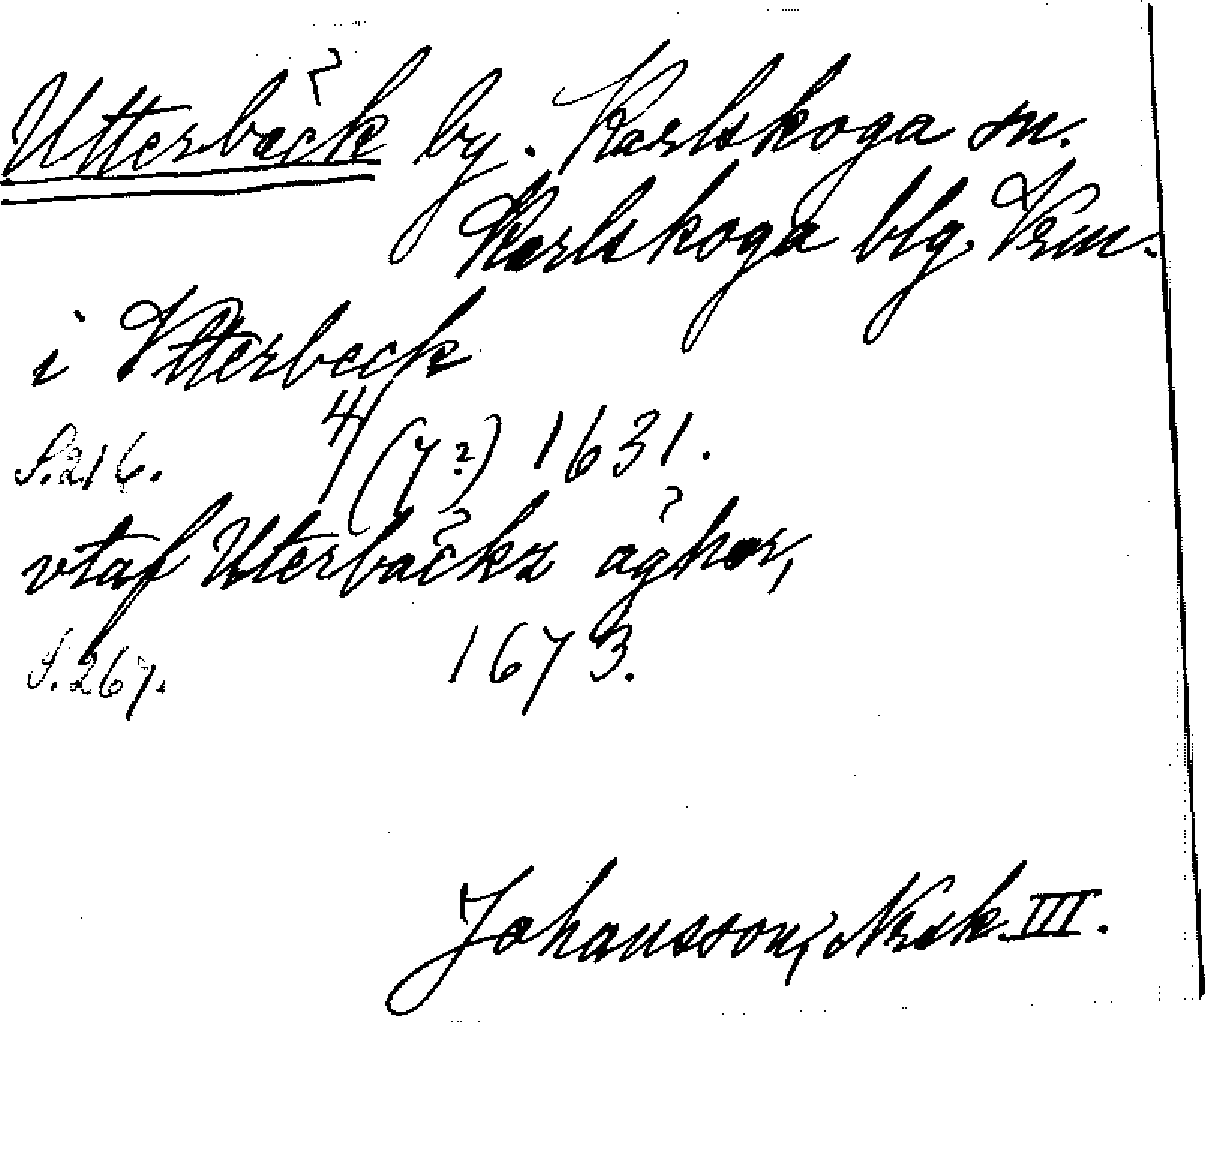 ?
Utterbäck by. Karlskoga sn.
Karlskoga blg. Vrm.
i Vtterbeck
S. 216. 4/(7?) 1631.
vtaf Utterbäckz ägher,
S. 267. 1673.
Johansson, Nbsk. III.